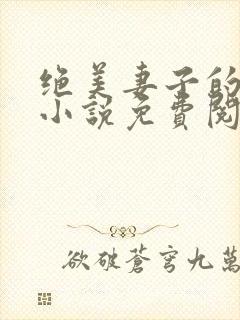 绝美妻子的
小说免費阅
欲破蒼穹九萬